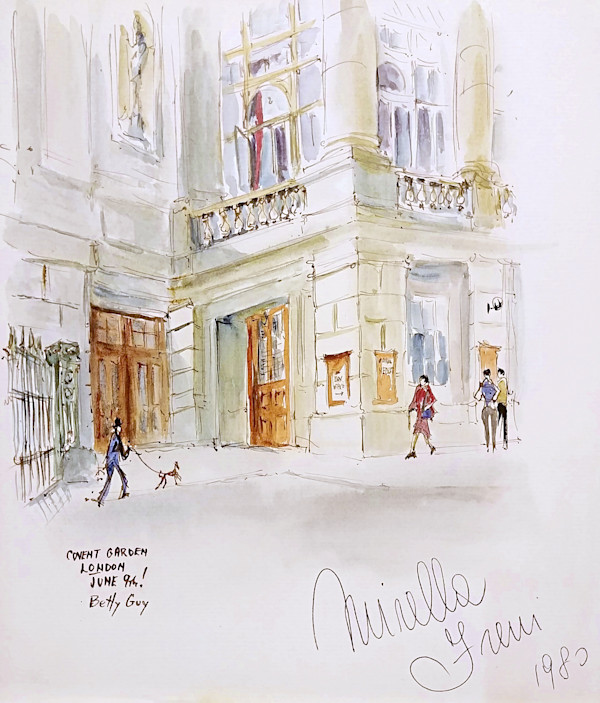 COVENT GARDEN
LONDON
JUNE 9th!
Betty Guy
Mirella
Freni
1980